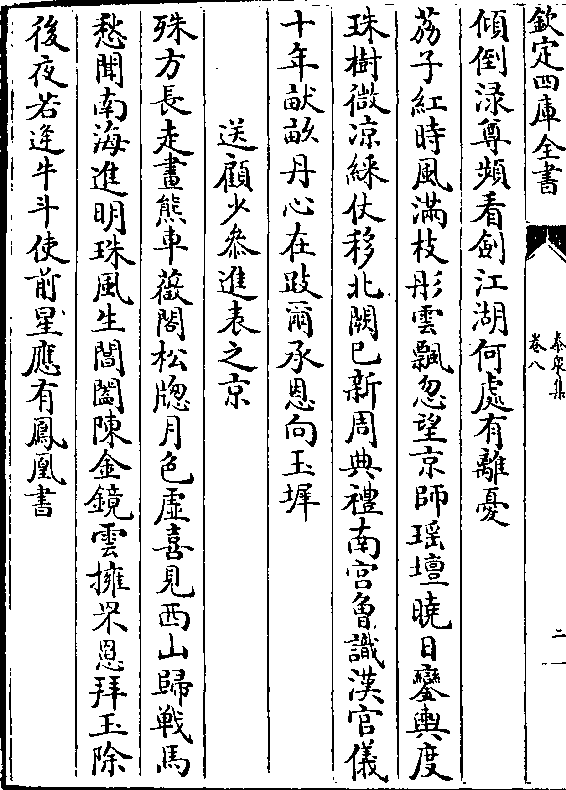 欽定四庫全書
泰泉集
卷八
二
傾倒渌尊頻看劍江湖何處有離憂
荔子紅時風滿枝彤雲飄忽望京師瑶壇曉日鑾輿度
珠樹微凉綵仗移北闕已新周典禮南宫曽識漢官儀
十年畎畝丹心在跂爾承恩向玉墀
送顧少叅進表之京
殊方長走畫熊車薇閣松牎月色虚喜見西山歸戰馬
愁聞南海進明珠風生閶闔陳金鏡雲擁罘罳拜玉除
後夜若逢牛斗使前星應有鳳凰書